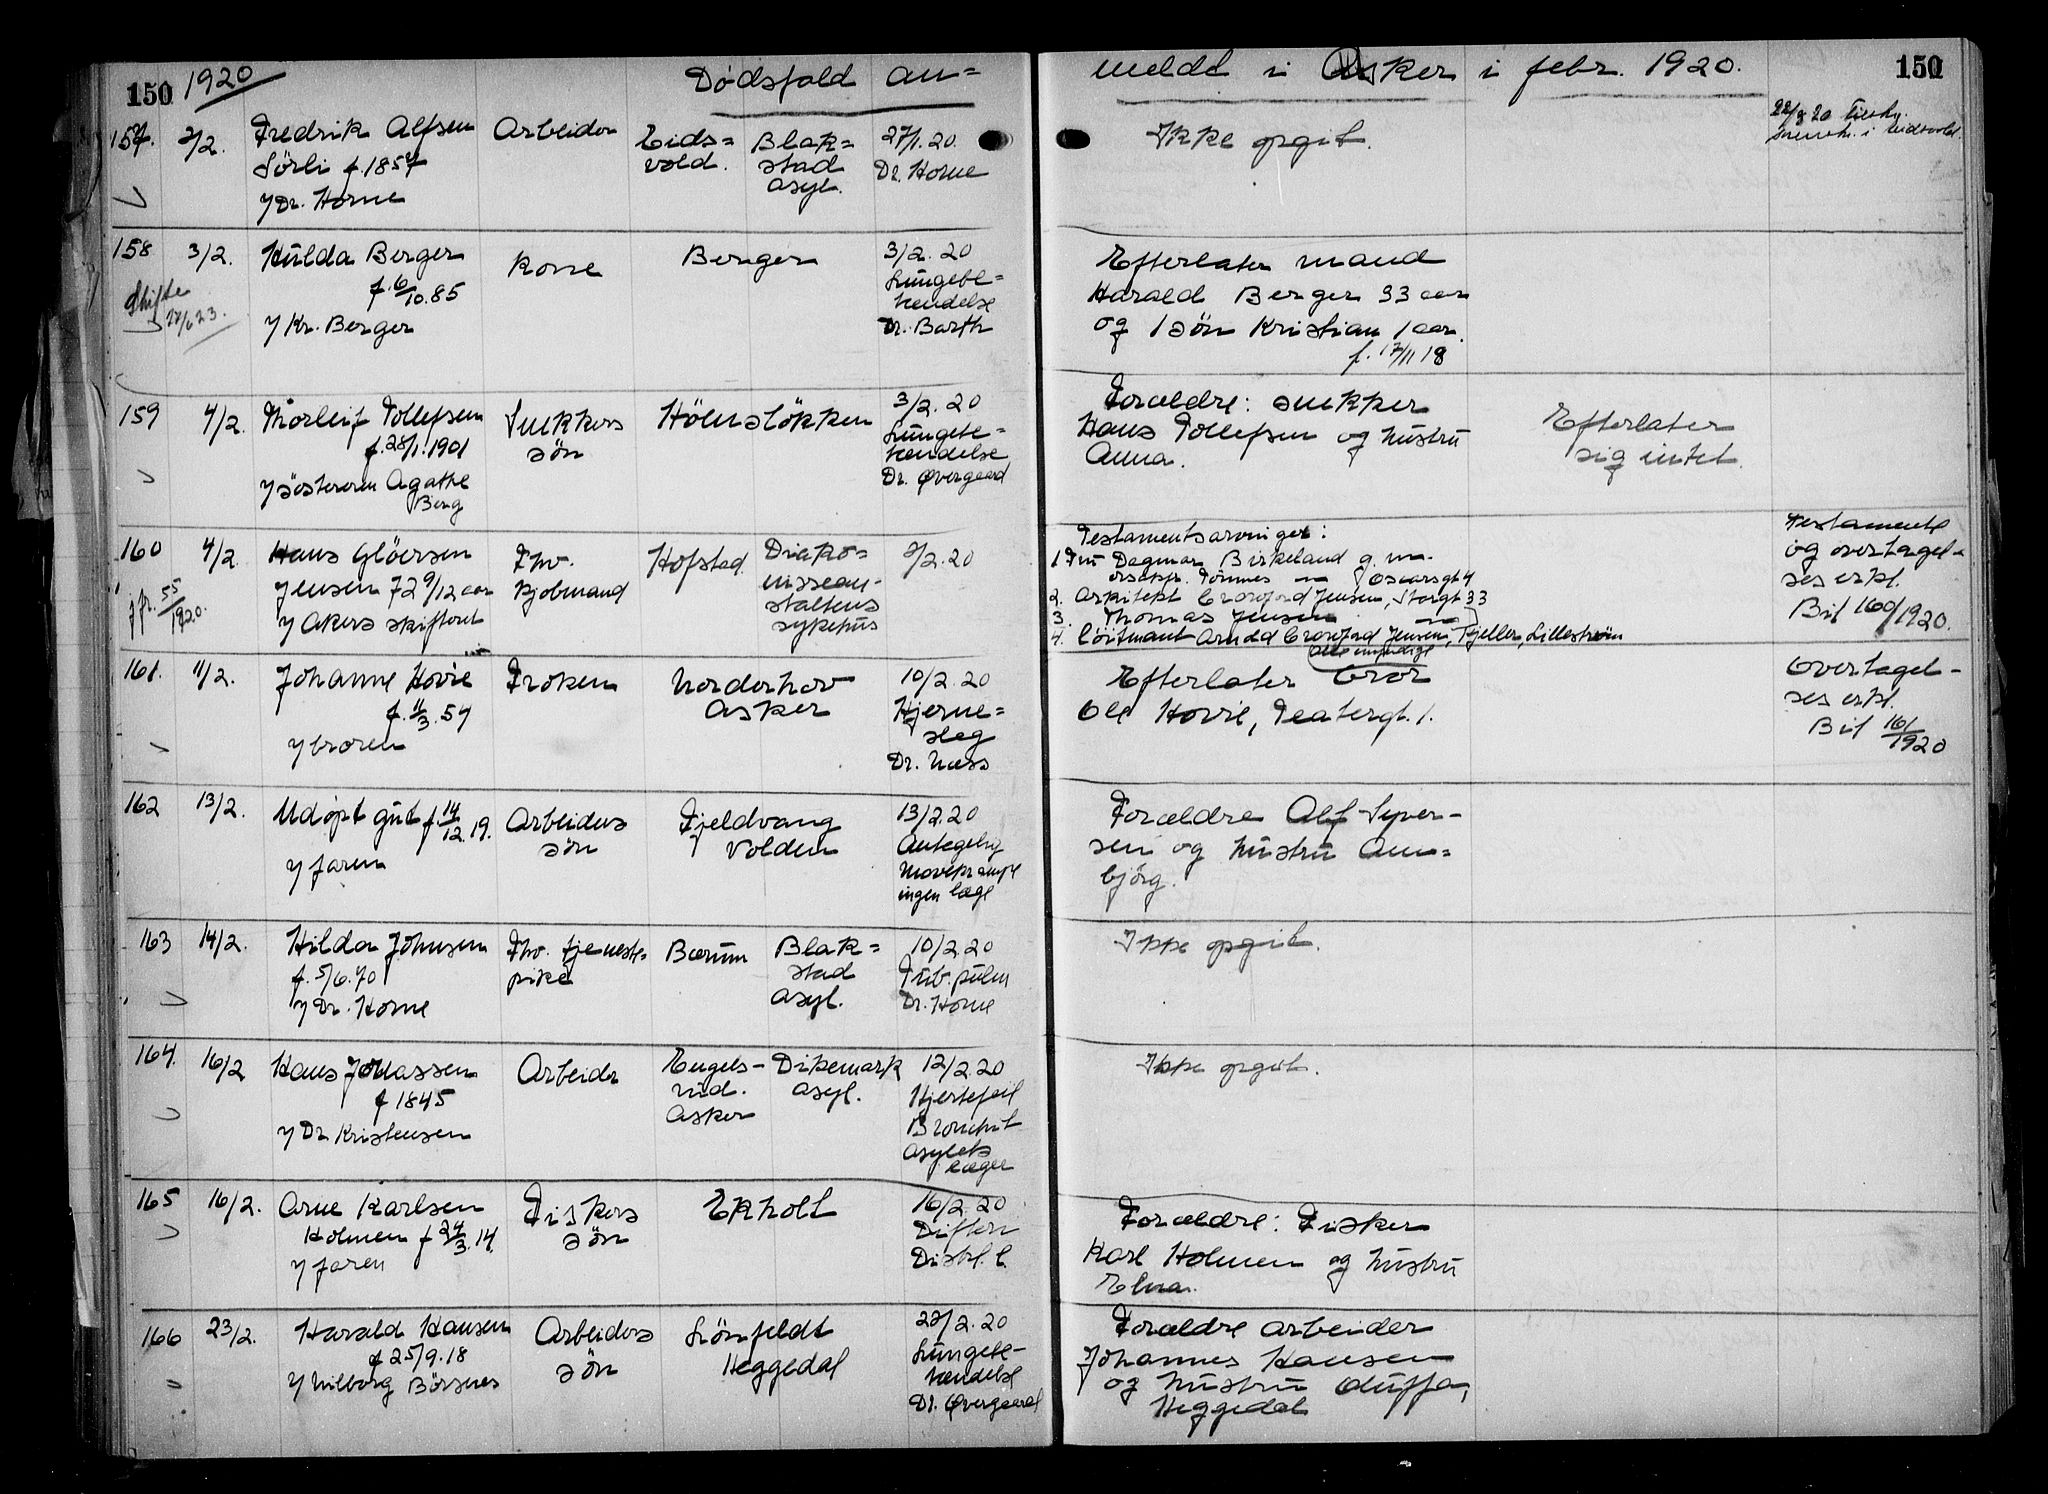 150 1920 Dødsfald an=
meldt i Asker i febr. 1920. 150
157. 2/2. Fredrik Alfsen Sörli f. 1857
v/ Dr. Horne
Arbeider
Eids=
vold.
Blak=
stad
asyl.
27/1.20.
Dr. Horne
Ikke opgit.
i Eidsvold.
158 3/2. Hulda Berger
f. 6/10.85
v/ Kr. Berger
Skifte
Kone
Berger
3/2.20
Lungebe=
tændelse
Dr. Barth
Efterlater mand
Harald Berger 33 aar
og 1 sön Kristian 1 aar.
f. 17/11 18
159 4/2. Thorleif Tollefsen
f. 28/1.1901
v/ sösteren Agathe
Berg
Snekkers
sön
Hölmslökken
3/2.20
Lungebe=
tændelse
Dr. Øvergaard
Forældre: snekker
Hans Tollefsen og hustru
Anna.
Efterlater
sig intet.
160 4/2. Hans Glöersen
Jensen 72 9/12 aar
v/ Akers skifteret
jfr. 55/1920.
Fhv.
kjøbmand
Hofstad.
Diako=
nissean-
staltens
sykehus
2/2.20
Testamentsarvinger:
1 Fru Dagmar Birkeland g. m.
Tönnes Oscarsgt 4
2. Arkitekt Crawford Jensen, Storgt 33
3. Thomas Jensen
4. Löitnant Arnold Crawford Jensen, Kjeller, Lilleström
Alle myndige
Testamente
og overtagel-
ses erkl.
Bil 160/1920.
161. 11/2. Johanne Hovie
f. 11/3.57
v/ broren
Frøken
Norderhov
Asker
10/2.20
Hjerne=
slag
Dr. Næss
Efterlater bror
Ole Hovie, Teatergt. 1.
Overtagel-
ses erkl.
Bil 161/1920
162 13/2. Udøpt gut f. 14/12.19.
v/ faren
Arbeiders
sön
Fjeldvang
Volden
13/2.20
Antagelig
Mavekrampe
ingen læge
Forældre Alf Syver-
sen og hustru Ann=
björg.
163 14/2. Hilda Johnsen
f. 5/6.70
v/ Dr. Horne
Fhv. tjeneste-
pike
Bærum
Blak=
stad
asyl.
10/2.20
Tub. pulm
Dr. Horne
Ikke opgit.
164. 16/2 Hans Jonassen
f 1845
v/ Dr Kristensen
Arbeider
Engels-
rud.
Asker
Dikemark
asyl.
12/2.20
Hjertefeil
Bronchit
asylets
læger
Ikke opgit.
165 16/2. Arne Karlsen
Holmen f 24/3.14.
v/ faren
Fiskers
sön
Ekholt
16/2.20
Difteri
Distr. l.
Forældre: Fisker
Karl Holmen og hustru
Elna.
166 23/2. Harald Hansen
f 25/9.18
v/ Börsnes
Arbeiders
sön
Lönfeldt
Heggedal
22/2.20
Lungebe-
tændelse
Dr. Øvergaard
Forældre arbeider
Johannes Hansen
og hustru Oluffa,
Heggedal